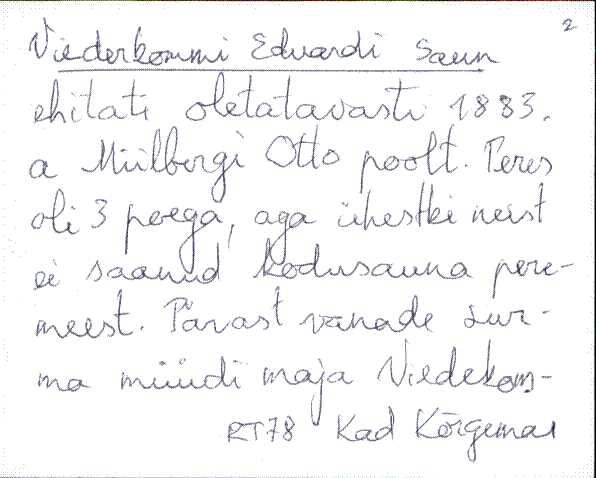 2
Viederkommi Eduardi Saun
ehitati oletatavasti 1883.
a Miilbergi Otto poolt. Peres
oli 3 poega, aga ühestki neist
ei saanud kodusauna pere-
meest. Pärast vanade sur-
ma müüdi maja Viedekom-
RT78 Kad Kõrgemaa